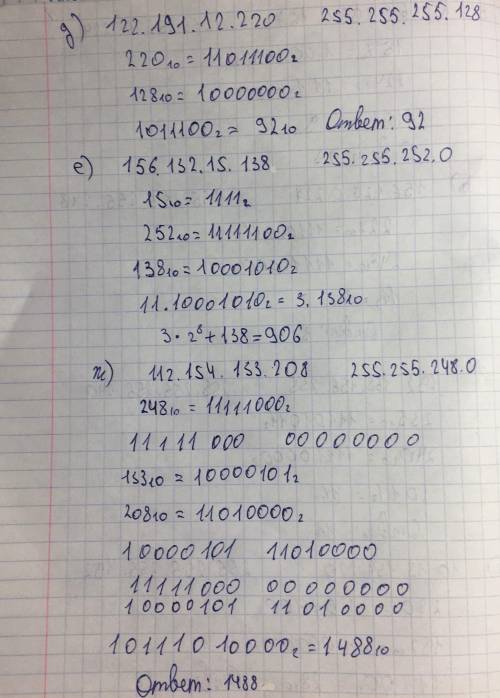 д) 122.191.12.220 255.255.255.128
220₁₀ = 11011100₂
128₁₀ = 10000000₂
1011100₂ = 92₁₀ Ответ: 92
е) 156.132.15.138 255.255.252.0
15₁₀ = 1111₂
252₁₀ = 11111100₂
138₁₀ = 10001010₂
11.10001010₂ = 3.138₁₀
3·2⁸+138=906
ж) 112.154.133.208 255.255.248.0
248₁₀ = 11111000₂
11111 000 00000000
133₁₀ = 10000101₂
208₁₀ = 11010000₂
10000101 11010000
11111000 00000000
10000101 11010000
10111010000₂ = 1488₁₀
Ответ: 1488